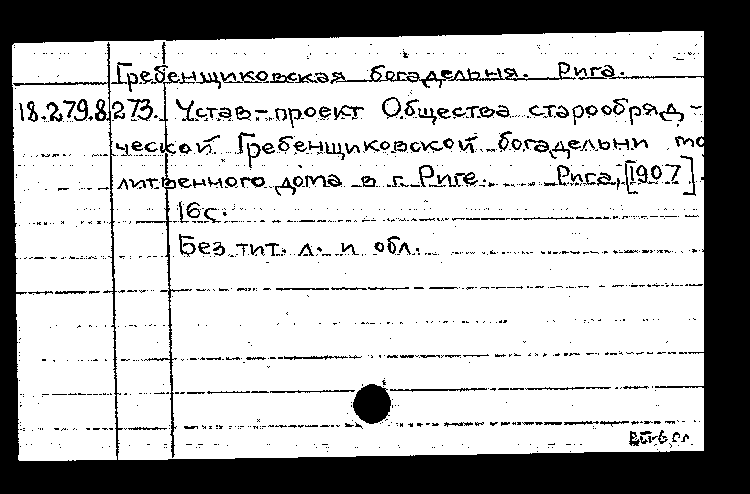 Гребенщиковская богадельня. Рига.
18.279.8.273. Устав-проект Общества старообряд-
ческой Гребенщиковской богадельни мо
литвенного дома в г. Риге. Рига, [1907].
16с.
Без тит. л. и обл.